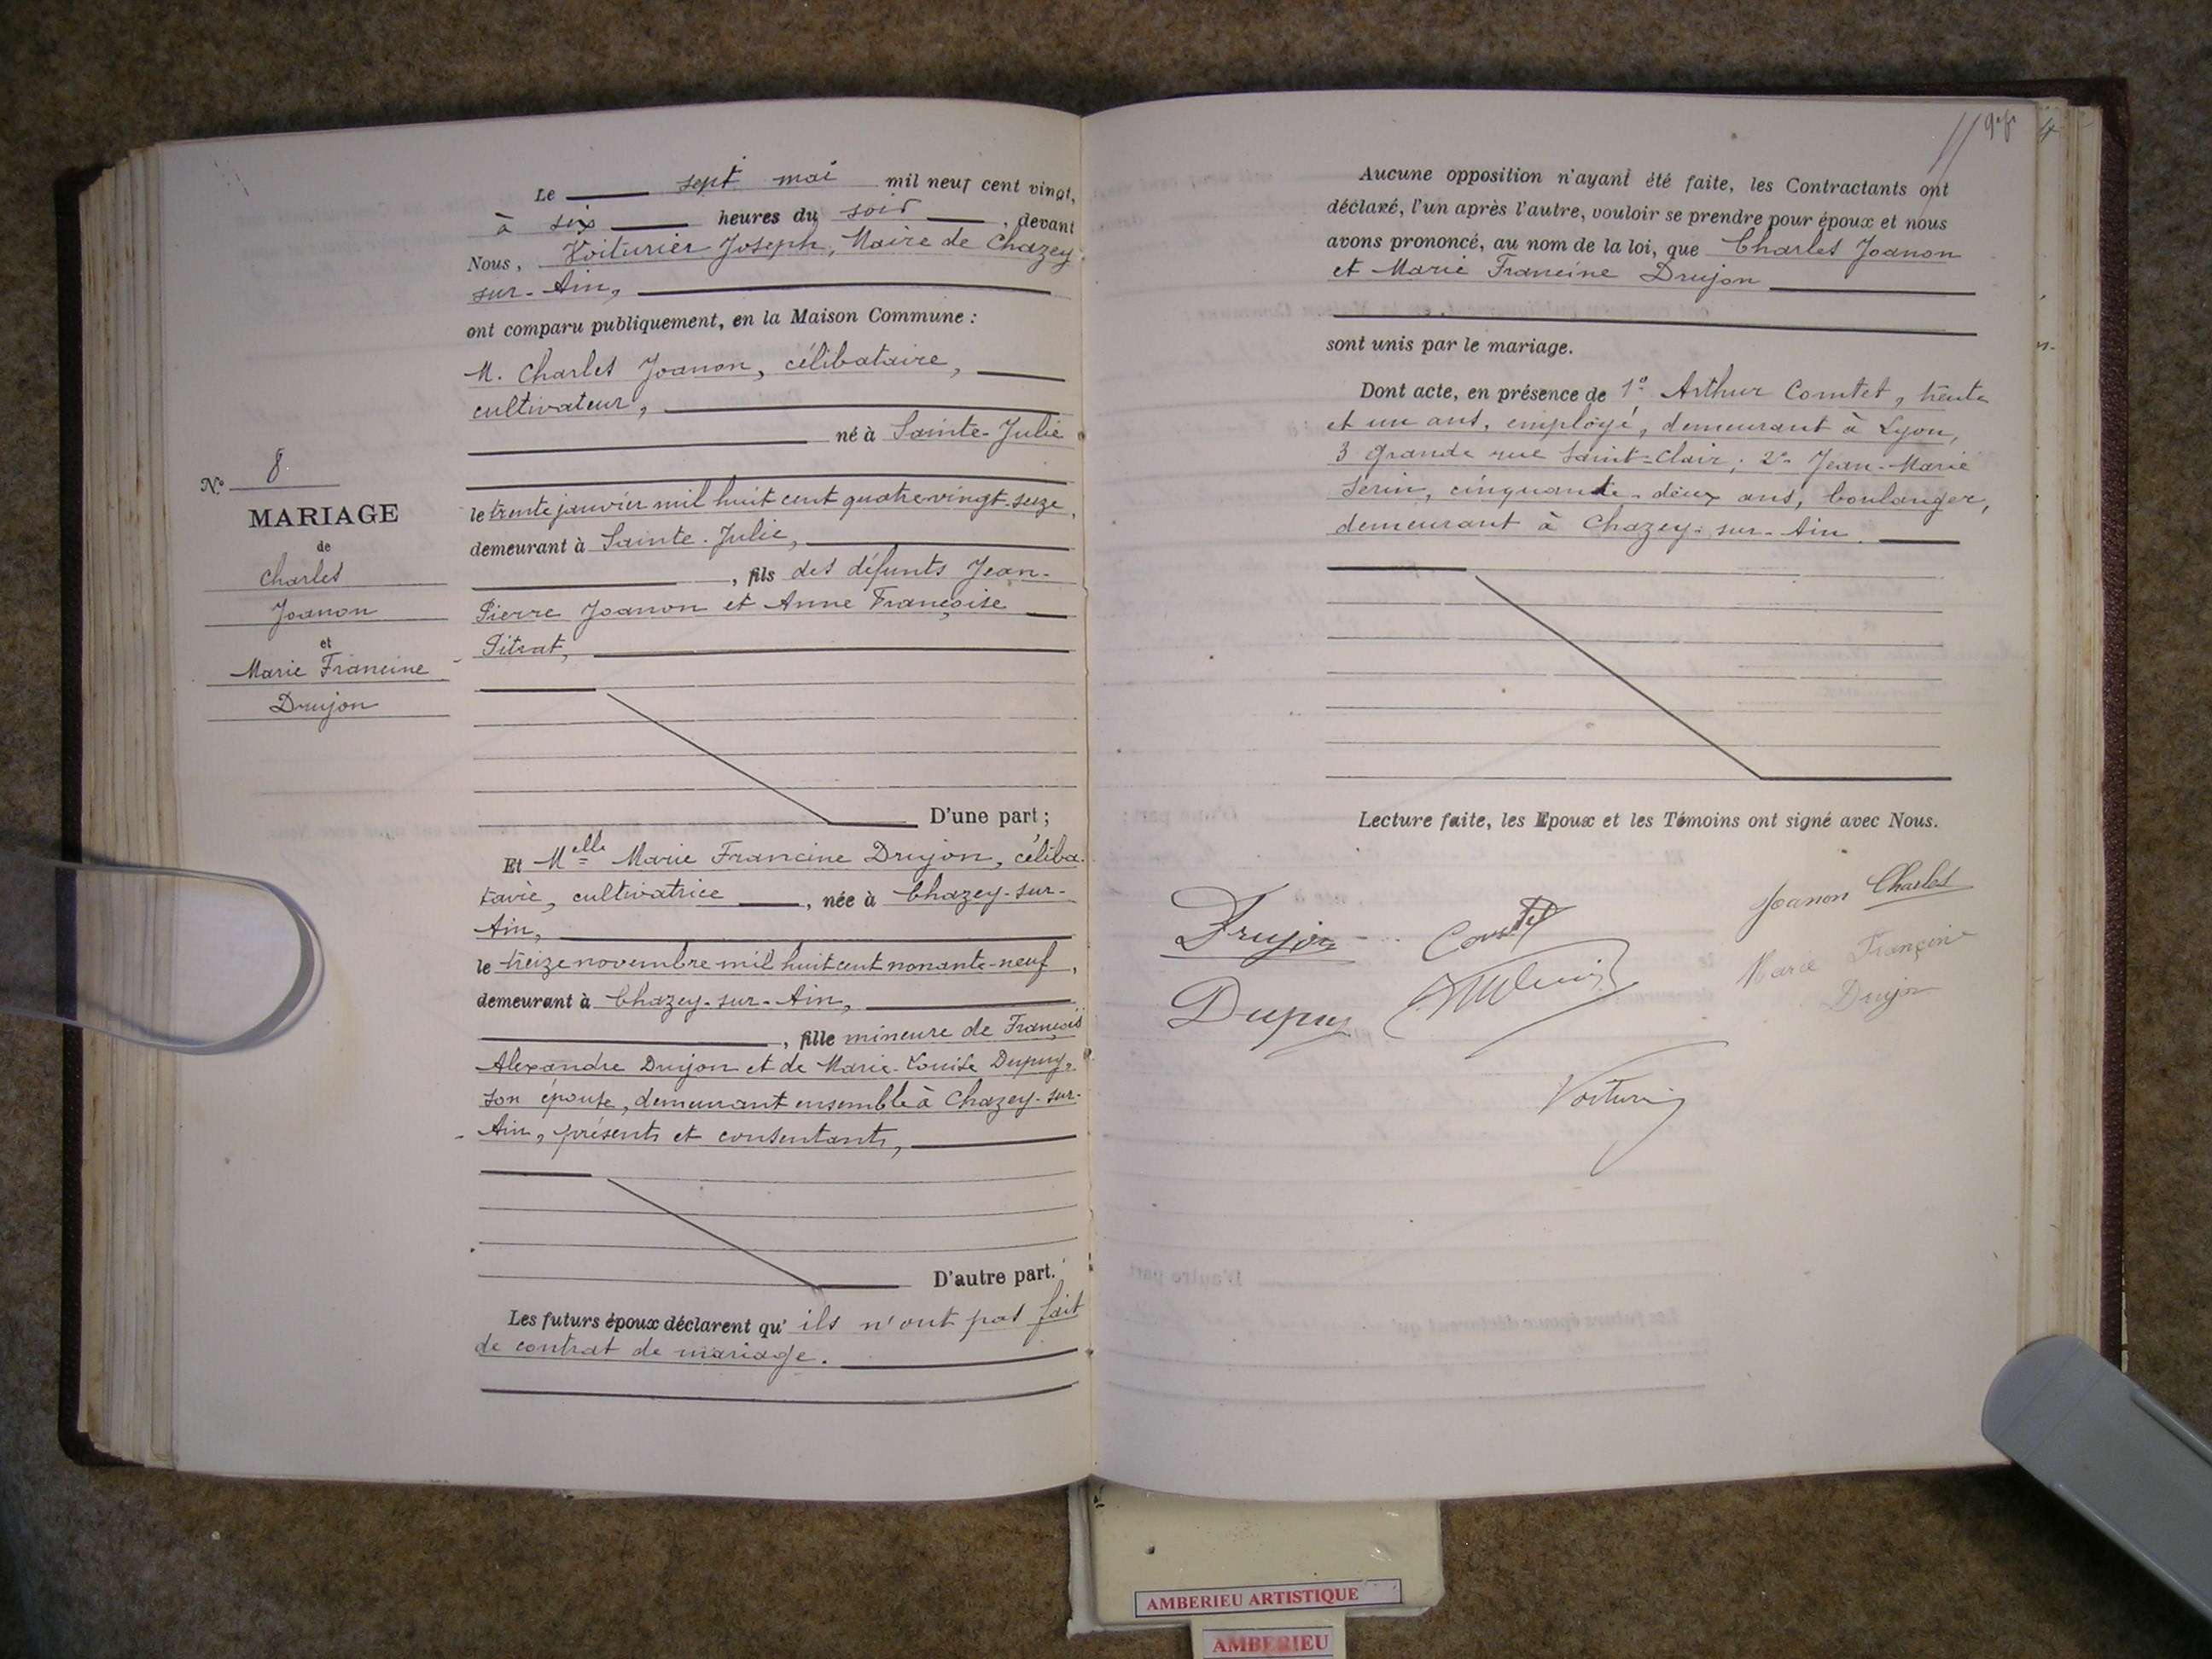 N° 8
MARIAGE
de
Charles
Joanon
et
Marie Francine
Drujon
Le sept mai mil neuf cent vingt,
à six heures du soir, devant
Nous, Voiturier Joseph, Maire de Chazey-
sur-Ain,
ont comparu publiquement, en la Maison Commune :
M. Charles Joanon, célibataire,
cultivateur,
né à Sainte-Julie
le trente janvier mil huit cent quatre vingt-seize,
demeurant à Sainte-Julie,
, fils des défunts Jean-
Pierre Joanon et Anne Françoise
Pitrat,
D'une part ;
Et Melle Marie Francine Drujon, céliba-
taire, cultivatrice, née à Chazey-sur-
Ain,
le treize novembre mil huit cent nonante-neuf,
demeurant à Chazey-sur-Ain,
, fille mineure de François
Alexandre Drujon et de Marie-Louise Dupuy,
son épouse, demeurant ensemble à Chazey-sur-
Ain, présents et consentants,
D'autre part.
Les futurs époux déclarent qu' ils n'ont pas fait
de contrat de mariage.
Aucune opposition n'ayant été faite, les Contractants ont
déclaré, l'un après l'autre, vouloir se prendre pour époux et nous
avons prononcé, au nom de la loi, que Charles Joanon
et Marie Francine Drujon
sont unis par le mariage.
Dont acte, en présence de 1° Arthur Comtet, trente
et un ans, employé, demeurant à Lyon,
3 Grande rue Saint-Clair; 2° Jean-Marie
Serin, cinquante-deux ans, boulanger,
demeurant à Chazey-sur-Ain.
Lecture faite, les Epoux et les Témoins ont signé avec Nous.
Drujon
Comtet
Joanon Charles
Dupuy
Marie Francine
Drujon
Voiturier
AMBERIEU ARTISTIQUE
AMBERIEU